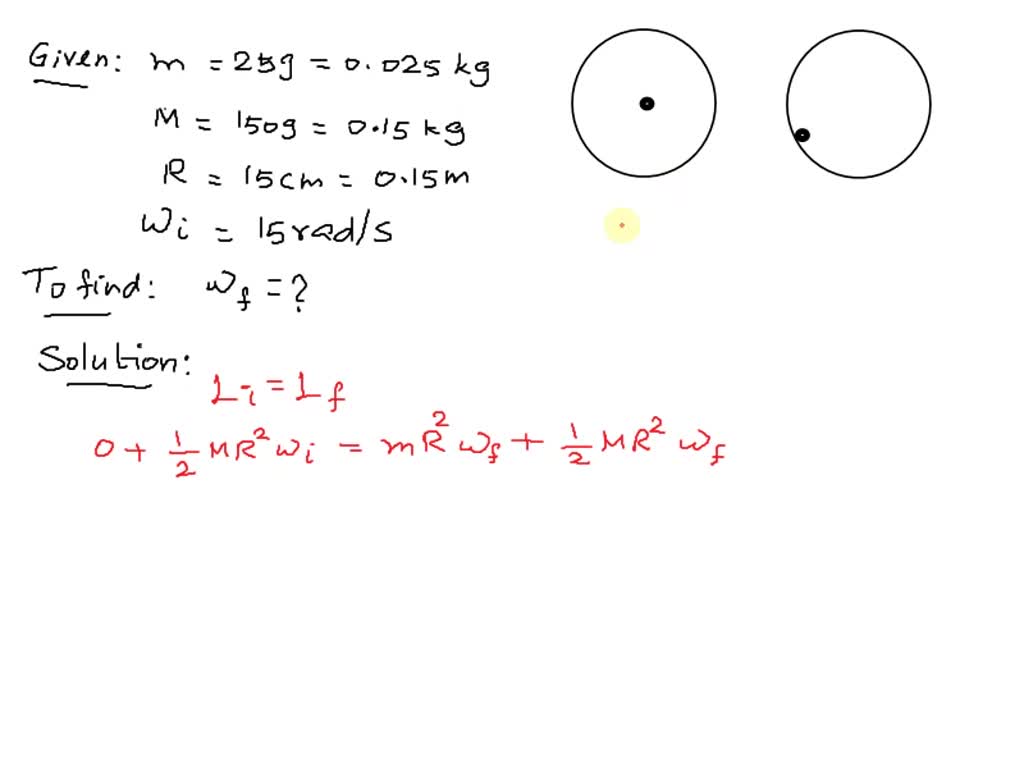 Given: m = 25g = 0.025 kg
M = 150g = 0.15 kg
R = 15cm = 0.15m
Wi = 15rad/s
To find: ωf = ?
Solution:
Li = Lf
0 + 1/2 MR² ωi = mR² ωf + 1/2 MR² ωf